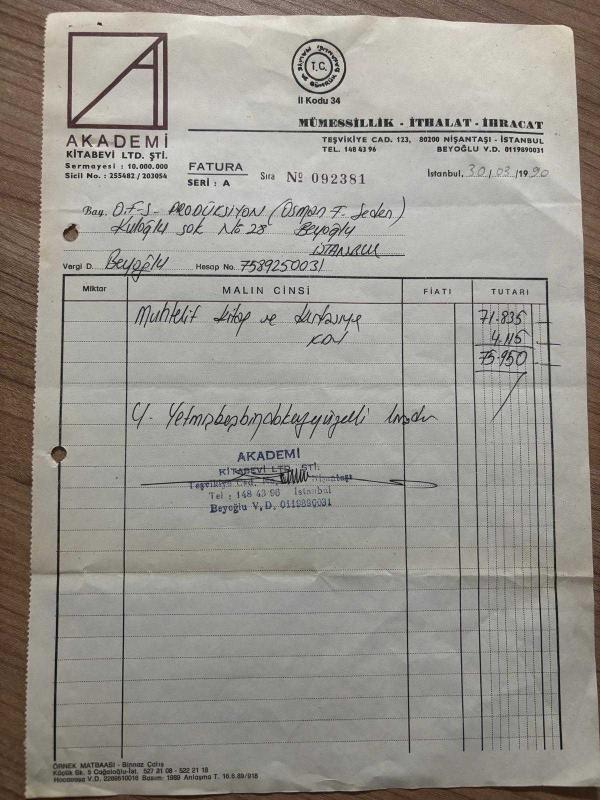 T.C.
MALİYE VE GÜMRÜK BAKANLIĞI
İl Kodu 34
AKADEMİ
KİTABEVİ LTD. ŞTİ.
Sermayesi : 10.000.000
Sicil No. : 255482 / 203054
MÜMESSİLLİK - İTHALAT - İHRACAT
TEŞVİKİYE CAD. 123, 80200 NİŞANTAŞI - İSTANBUL
TEL. 148 43 96 BEYOĞLU V.D. 0119890031
FATURA
SERİ : A
Sıra № 092381
İstanbul, 30/03/1990
Bay. O.F.S- PRODÜKSİYON (Osman F. Seden)
Kuloğlu sok No 28 Beyoğlu
İSTANBUL
Vergi D. Beyoğlu Hesap No. 7589250031
Miktar MALIN CİNSİ FİATI TUTARI
Muhtelif kitap ve kırtasiye 71.835
KDV 4.115
75.950
Y. Yetmişbeşbindokuzyüzelli liradır
AKADEMİ
KİTABEVİ LTD. ŞTİ.
Teşvikiye Cad. Nişantaşı
Tel : 148 43 96 İstanbul
Beyoğlu V.D. 0119890031
ÖRNEK MATBAASI - Binnaz Çalış
Küçük Sk. 5 Cağaloğlu-İst. 527 31 08 - 522 21 18
Hocapaşa V.D. 2269510016 Basım: 1989 Anlaşma T. 16.6.89/918